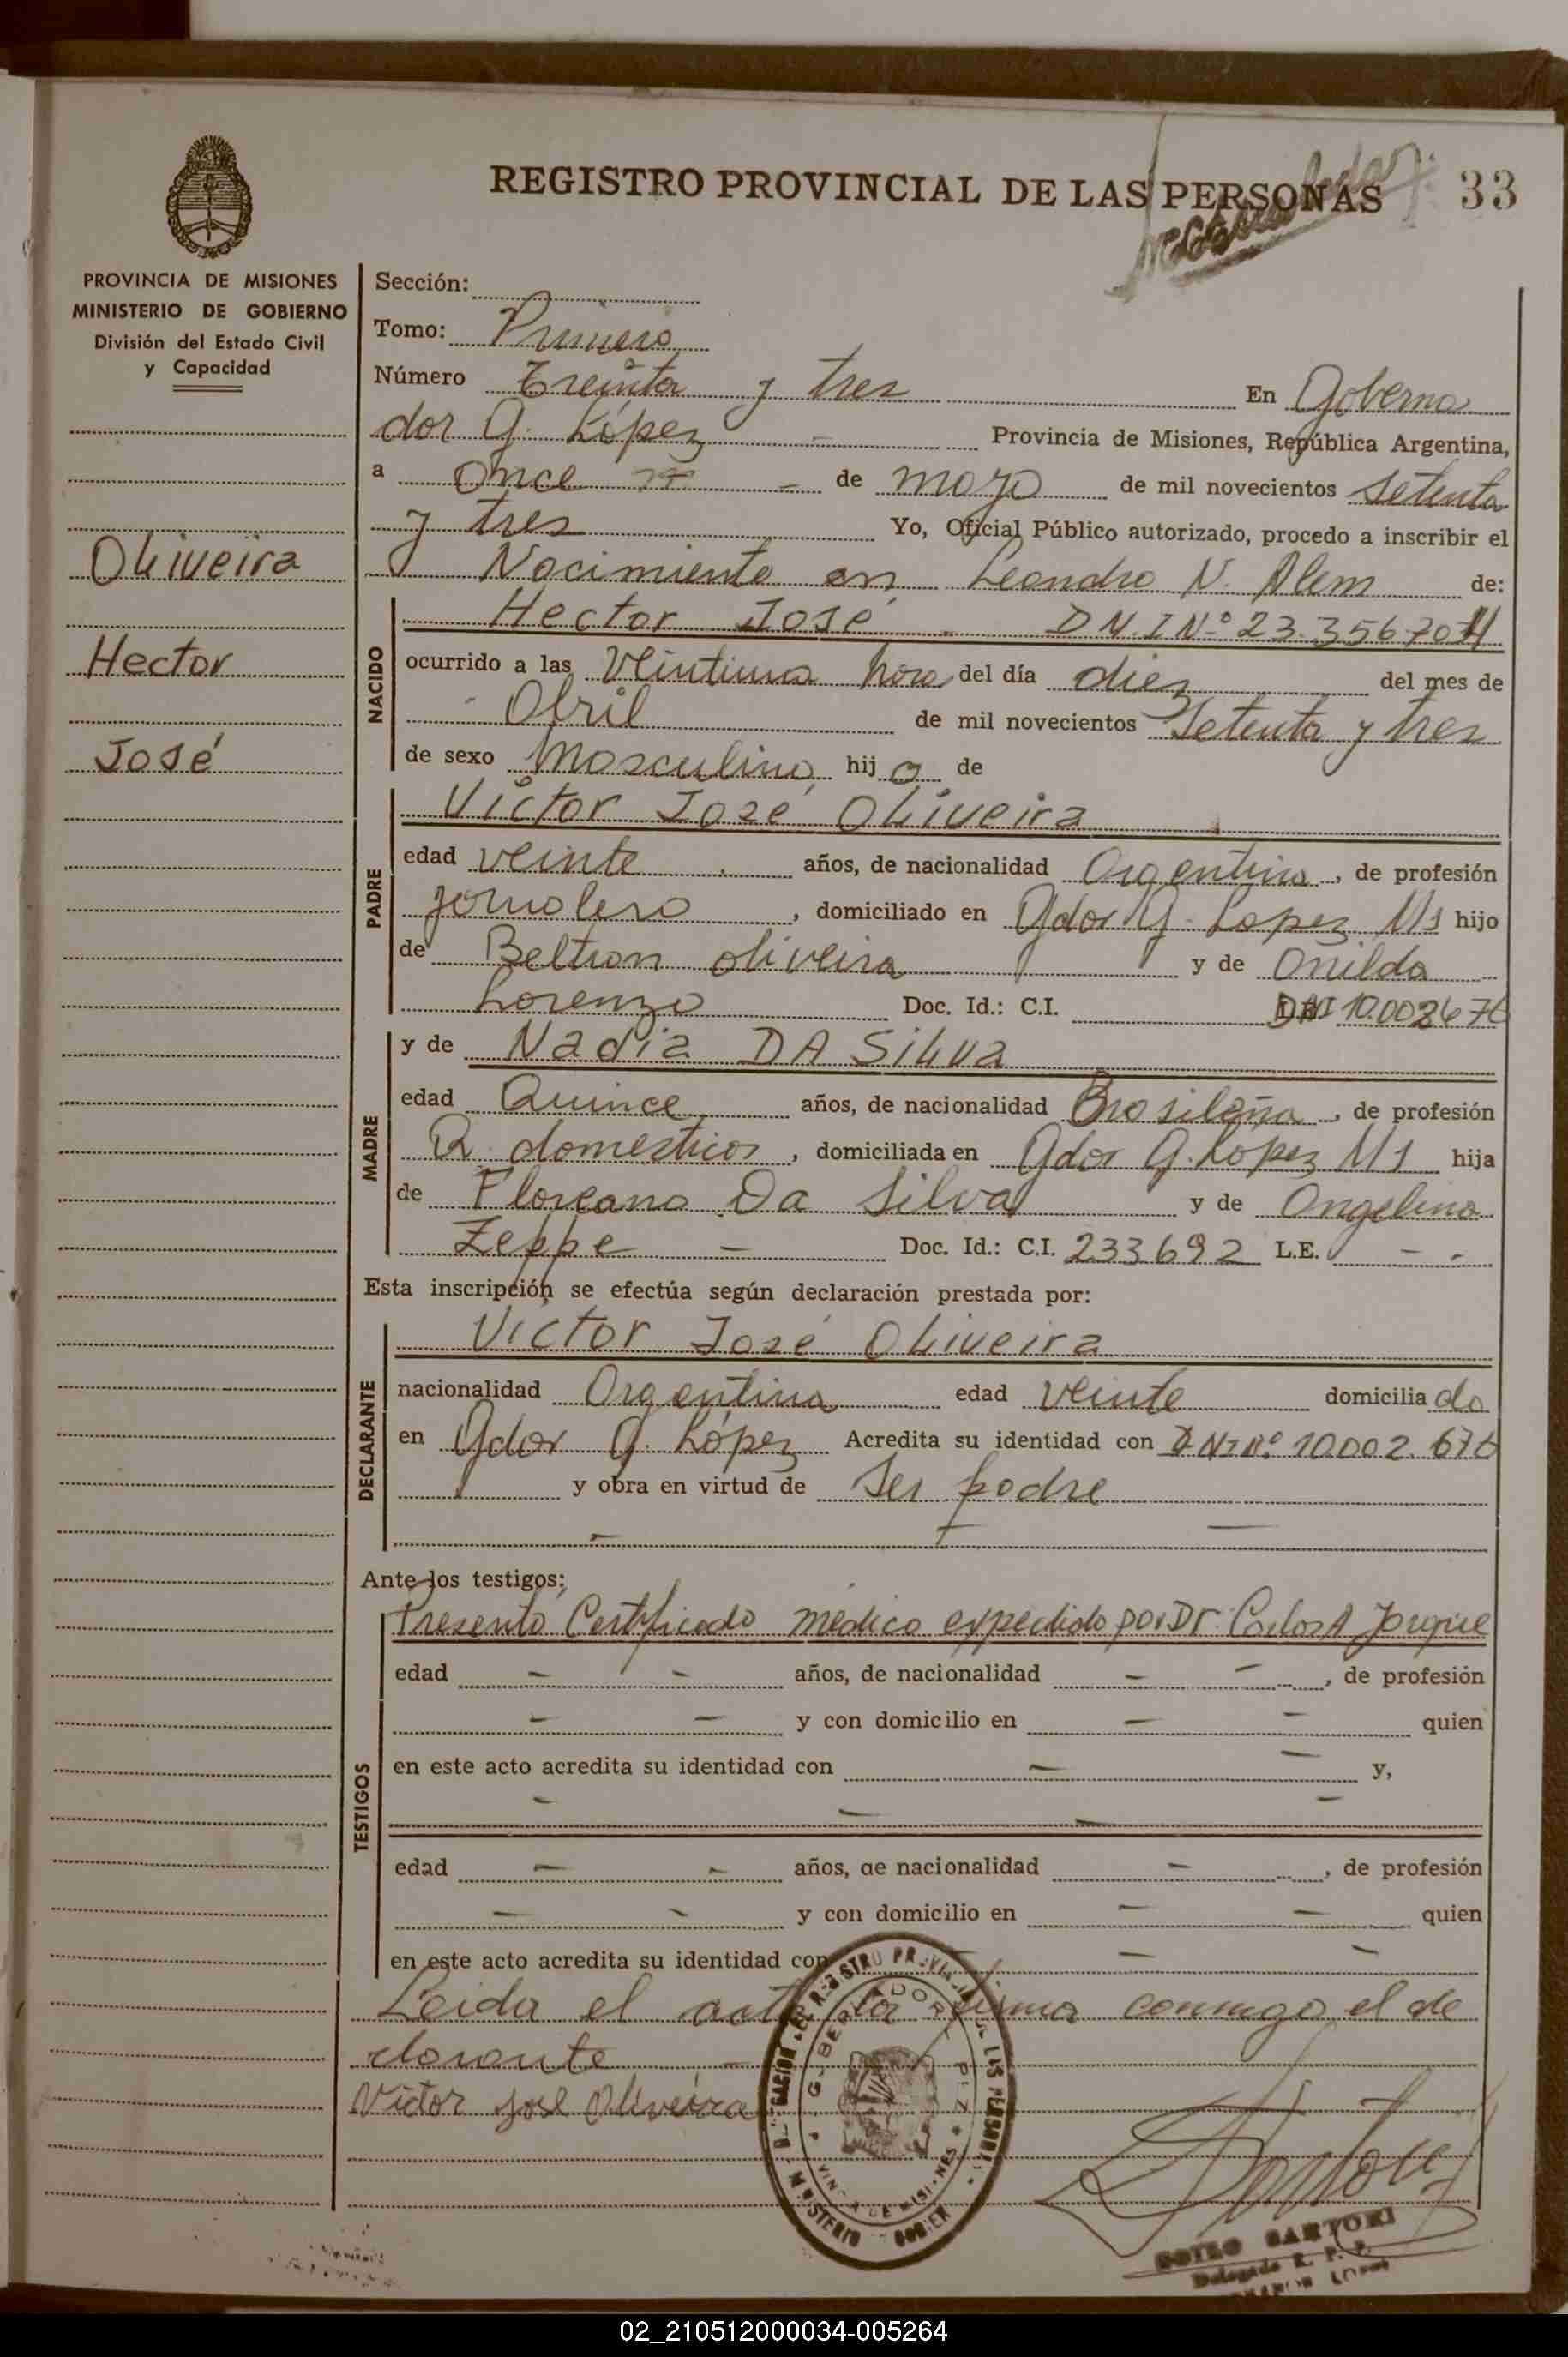 REGISTRO PROVINCIAL DE LAS PERSONAS 33
PROVINCIA DE MISIONES
MINISTERIO DE GOBIERNO
División del Estado Civil
y Capacidad
Oliveira
Hector
José
Sección:
Tomo: Primero
Número Treinta y tres En Goberna
dor G. López Provincia de Misiones, República Argentina,
a once de mayo de mil novecientos setenta
y tres Yo, Oficial Público autorizado, procedo a inscribir el
Nacimiento en Leandro N. Alem de:
NACIDO
Hector José - D N I Nº 23.356.70
ocurrido a las veintiuna hora del día diez del mes de
Abril de mil novecientos Setenta y tres
de sexo Masculino hijo de
PADRE
Victor José Oliveira
edad veinte años, de nacionalidad Argentina, de profesión
jornalero, domiciliado en Gdor G. Lopez Ms hijo
de Beltran Oliveira y de Onilda
Lorenzo Doc. Id.: C.I.
MADRE
y de Nadia DA Silva
edad Quince años, de nacionalidad Brasileña, de profesión
Q. domesticos, domiciliada en Gdor G. López Ms hija
de Floreano Da Silva y de Angelina
Zeppe - Doc. Id.: C.I. 233692 L.E. - -
Esta inscripción se efectúa según declaración prestada por:
DECLARANTE
Victor José Oliveira
nacionalidad Argentina edad veinte domiciliado
en Gdor G. López Acredita su identidad con D.N.I Nº 10.002.676
y obra en virtud de Ser padre
Ante los testigos:
TESTIGOS
Presento Certificado médico expedido por Dr. Carlos A
edad - - años, de nacionalidad - -, de profesión
- - y con domicilio en - - quien
en este acto acredita su identidad con - - y,
edad - - años, de nacionalidad -, de profesión
- - y con domicilio en - - quien
en este acto acredita su identidad con - -
Leida el acta la firma conmigo el de
clarante -
Victor José Oliveira
SARTORI
Delegado R. P. P.
02_210512000034-005264